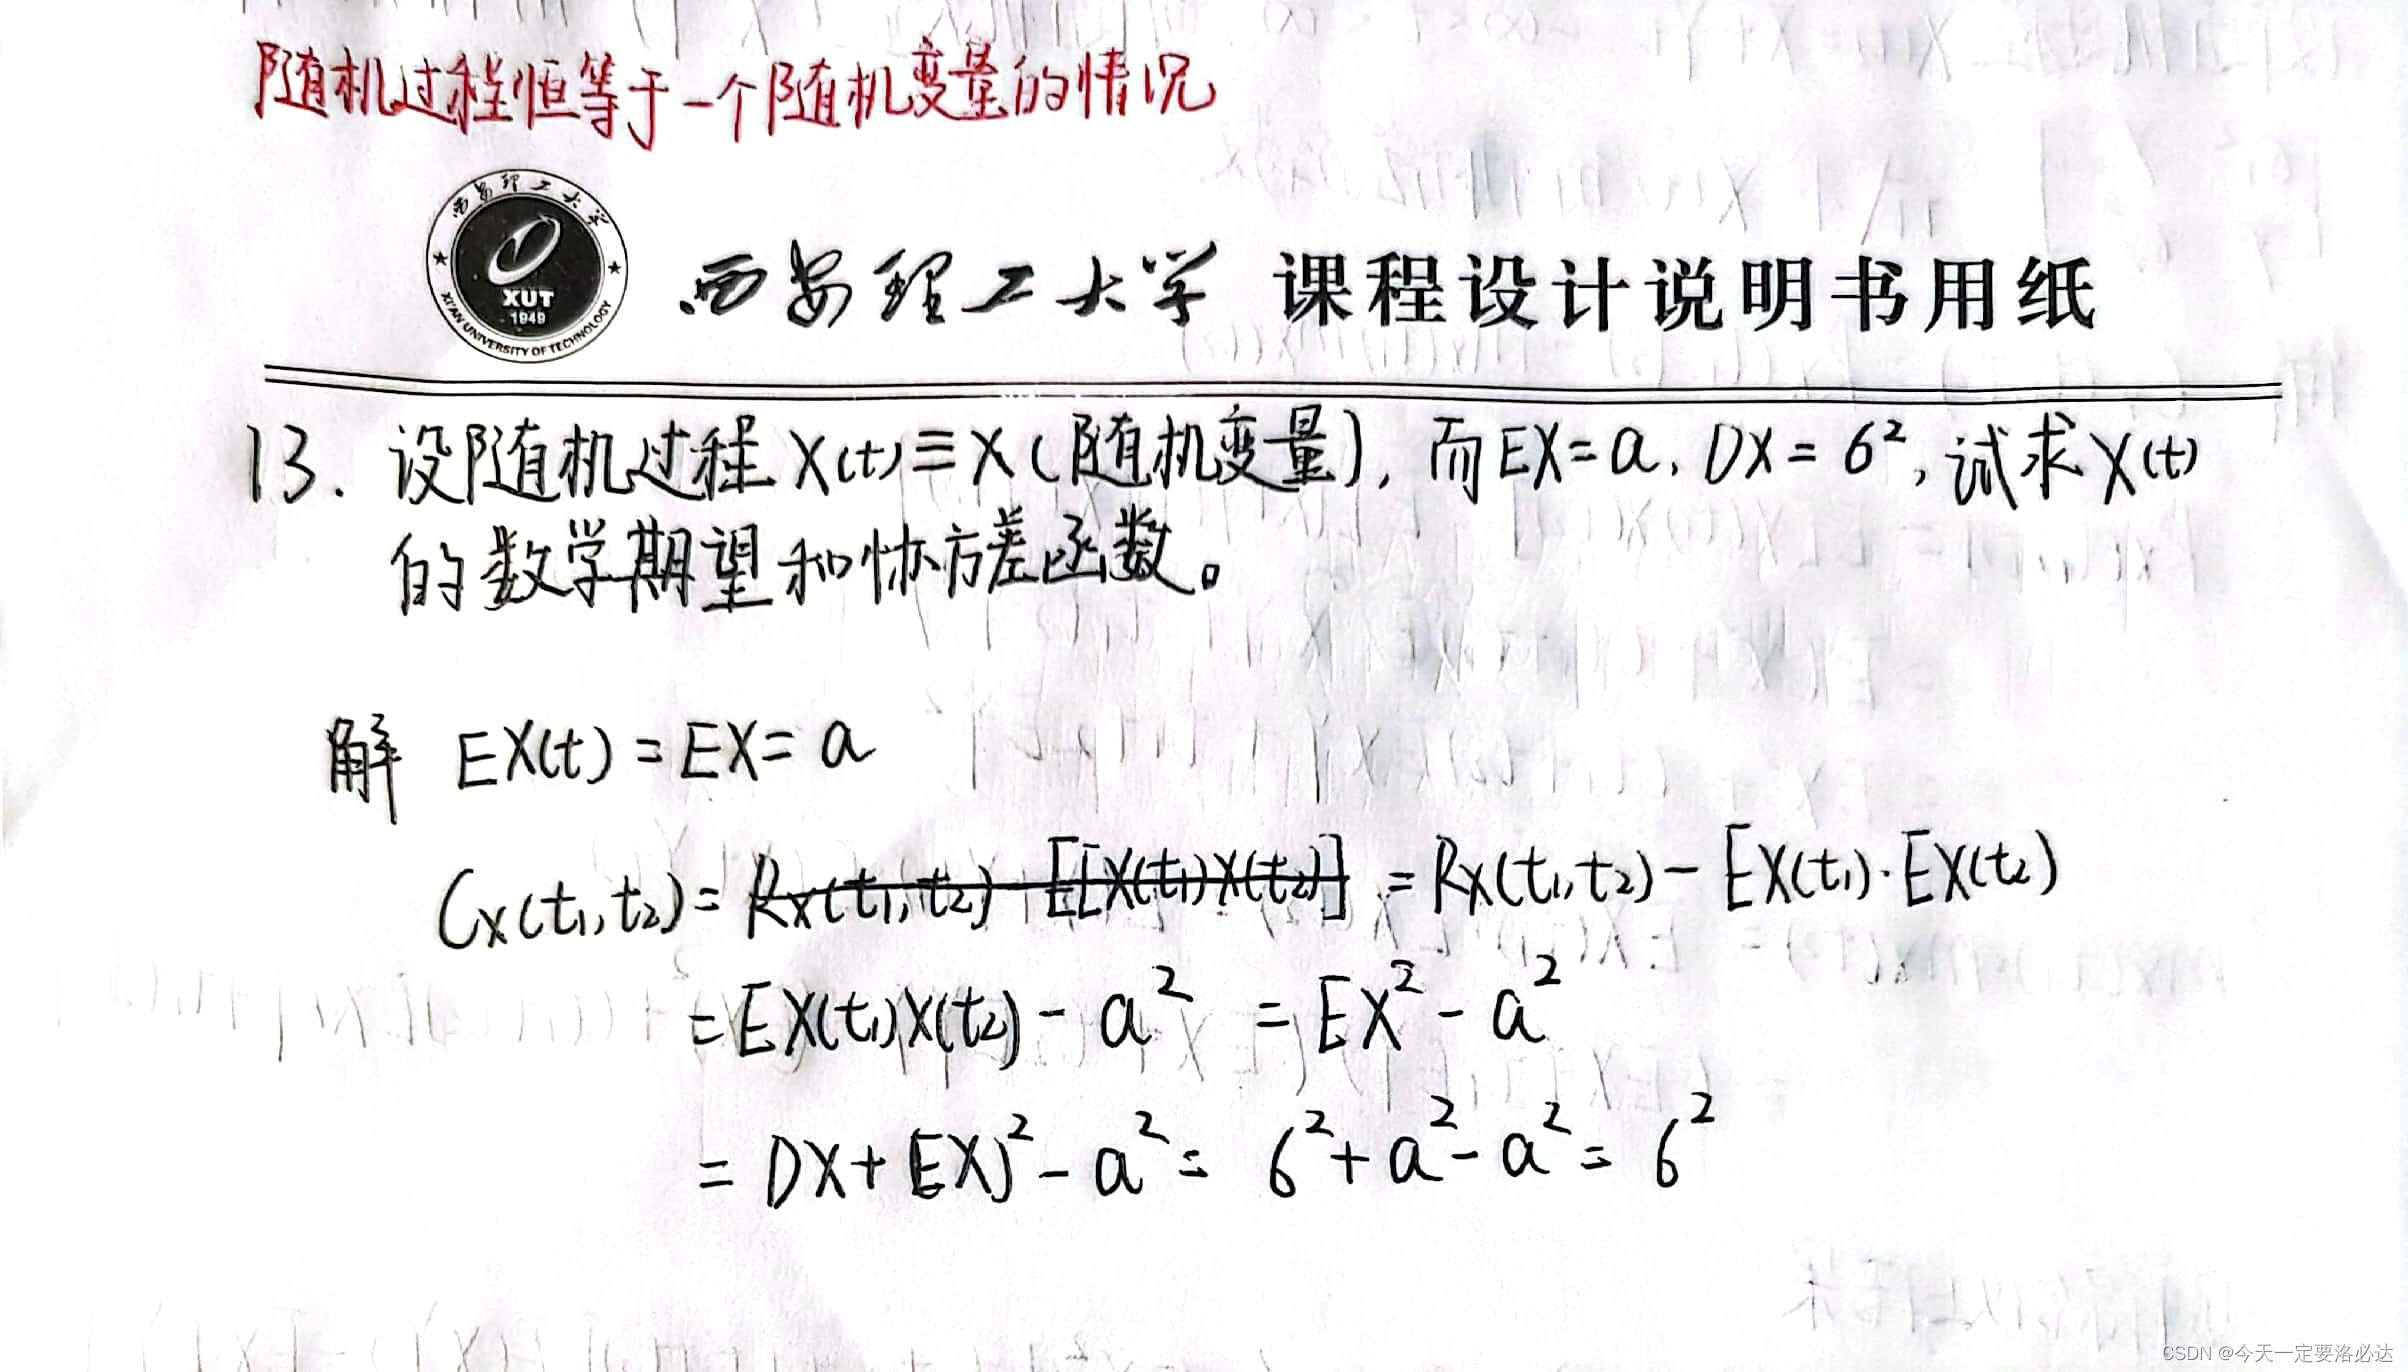 随机过程恒等于一个随机变量的情况
西安理工大学
XUT
1949
XI'AN UNIVERSITY OF TECHNOLOGY
西安理工大学 课程设计说明书用纸
13. 设随机过程 X(t)≡X (随机变量), 而 EX=a, DX=6², 试求 X(t)
的数学期望和协方差函数。
解 EX(t)=EX=a
Cx(t₁,t₂)= Rx(t₁,t₂)-E[X(t₁)X(t₂)] =Rx(t₁,t₂)-EX(t₁)·EX(t₂)
=EX(t₁)X(t₂)-a² =EX²-a²
=DX+(EX)²-a²=6²+a²-a²=6²
CSDN @今天一定要洛必达